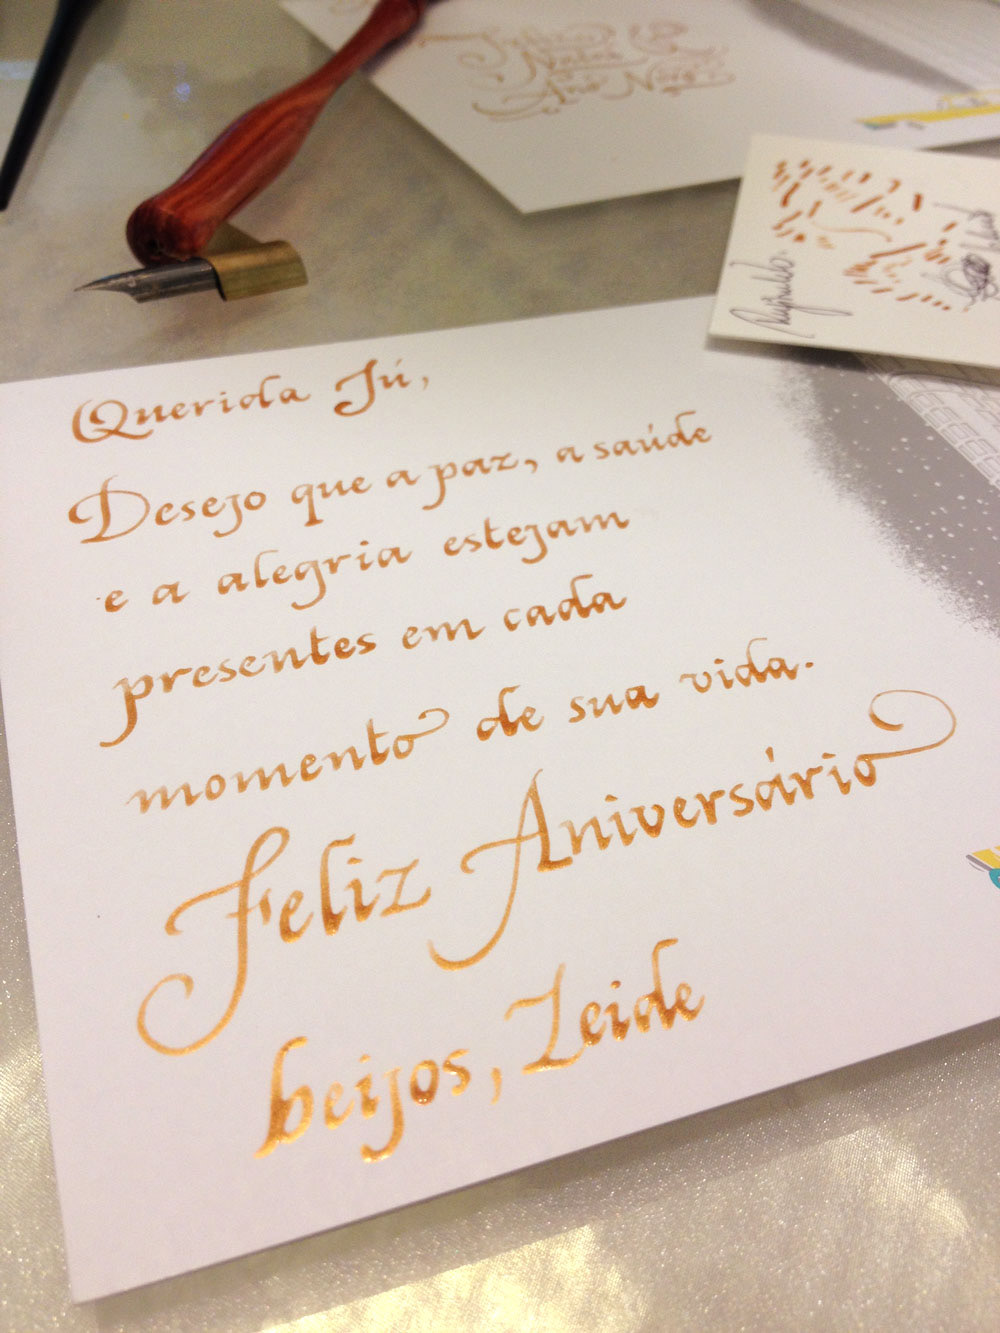 Feliz Natal
Ano Novo
Reginaldo.
Querida Jú,
Desejo que a paz, a saúde
e a alegria estejam
presentes em cada
momento de sua vida.
Feliz Aniversário
beijos, Zeide